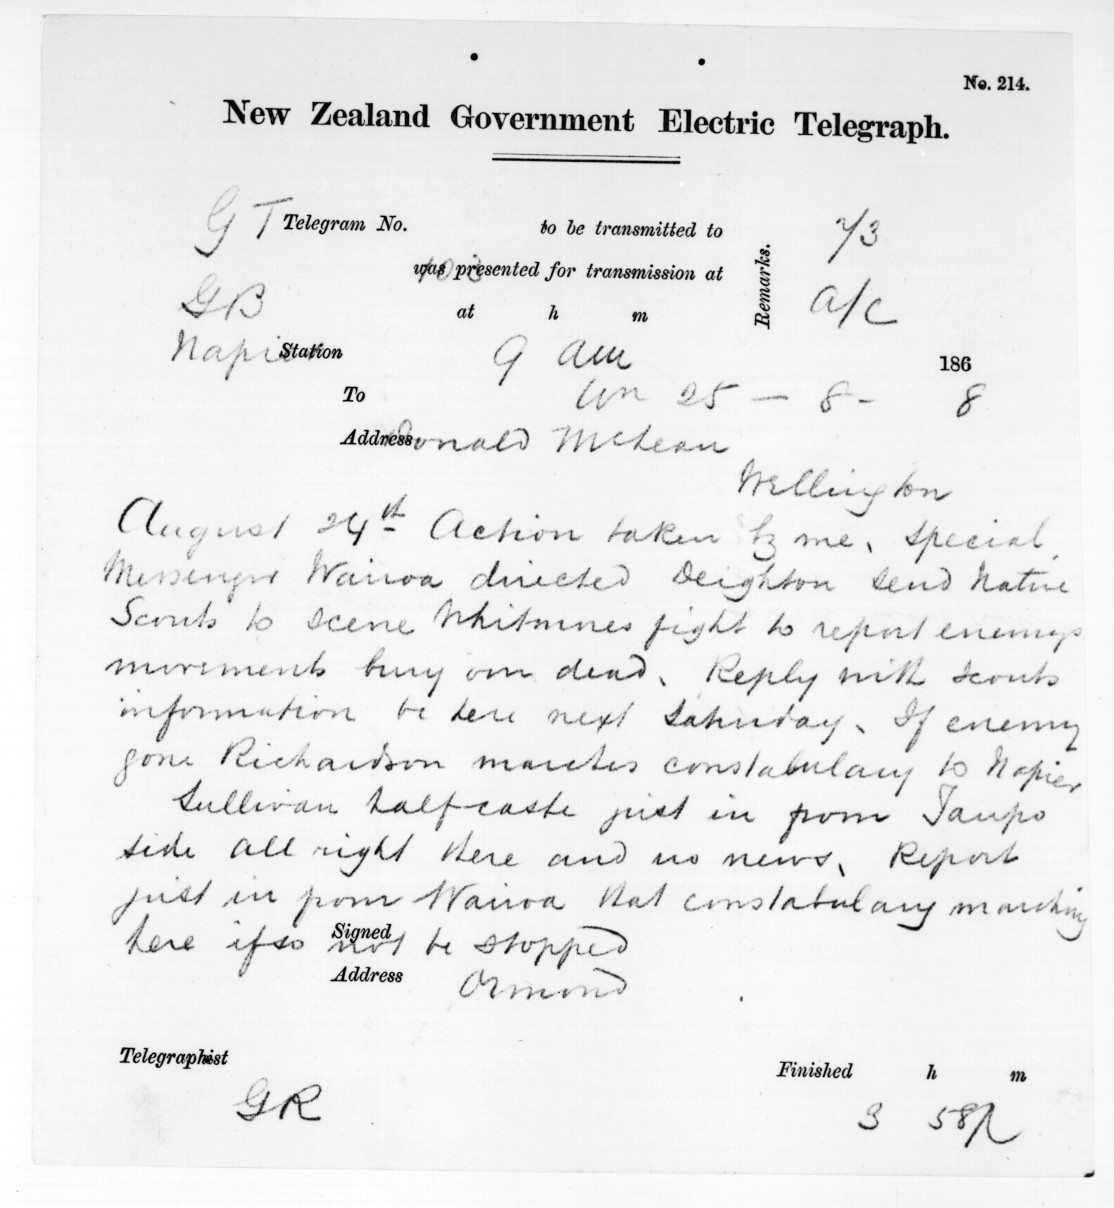 No. 214.
New Zealand Government Electric Telegraph.
GT Telegram No. to be transmitted to 7/3
was presented for transmission at Remarks.
GB at h m a/c
Napier Station 9 am 186
To on 25 - 8 - 8
Address Donald McLean
Wellington
August 24th Action taken by me, special
Messenger Wairoa directed Deighton send Native
Scouts to scene Whitmores fight to report enemys
movements bury own dead, Reply with scouts
information be here next Saturday, If enemy
gone Richardson marches constabulary to Napier
Sullivan half-caste just in from Taupo
side all right there and no news, Report
just in from Wairoa that constabulary marching
here if so not be stopped
Signed
Address Ormond
Telegraphist Finished h m
GR 3 58p